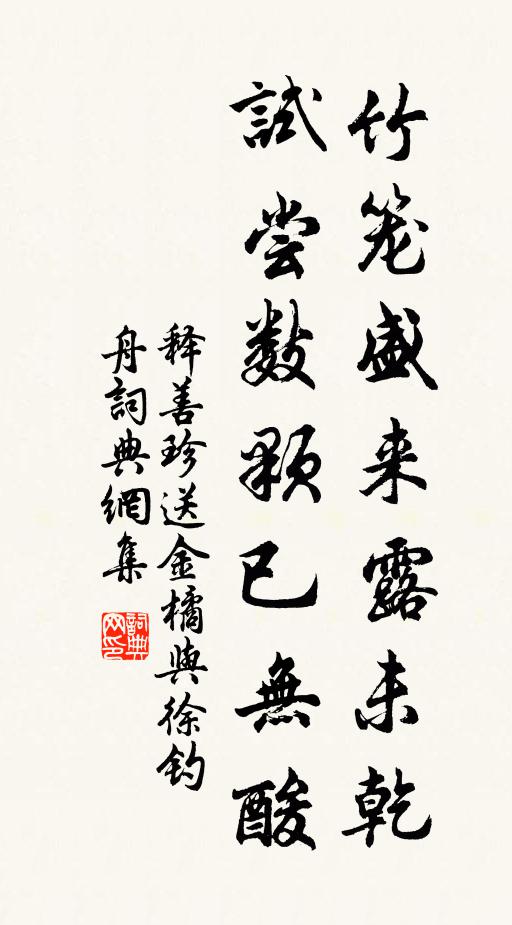 竹笼盛来露未乾
試尝数颗已無酸
释善珍送金橘與徐钓
舟詞典網集
詞典
网印